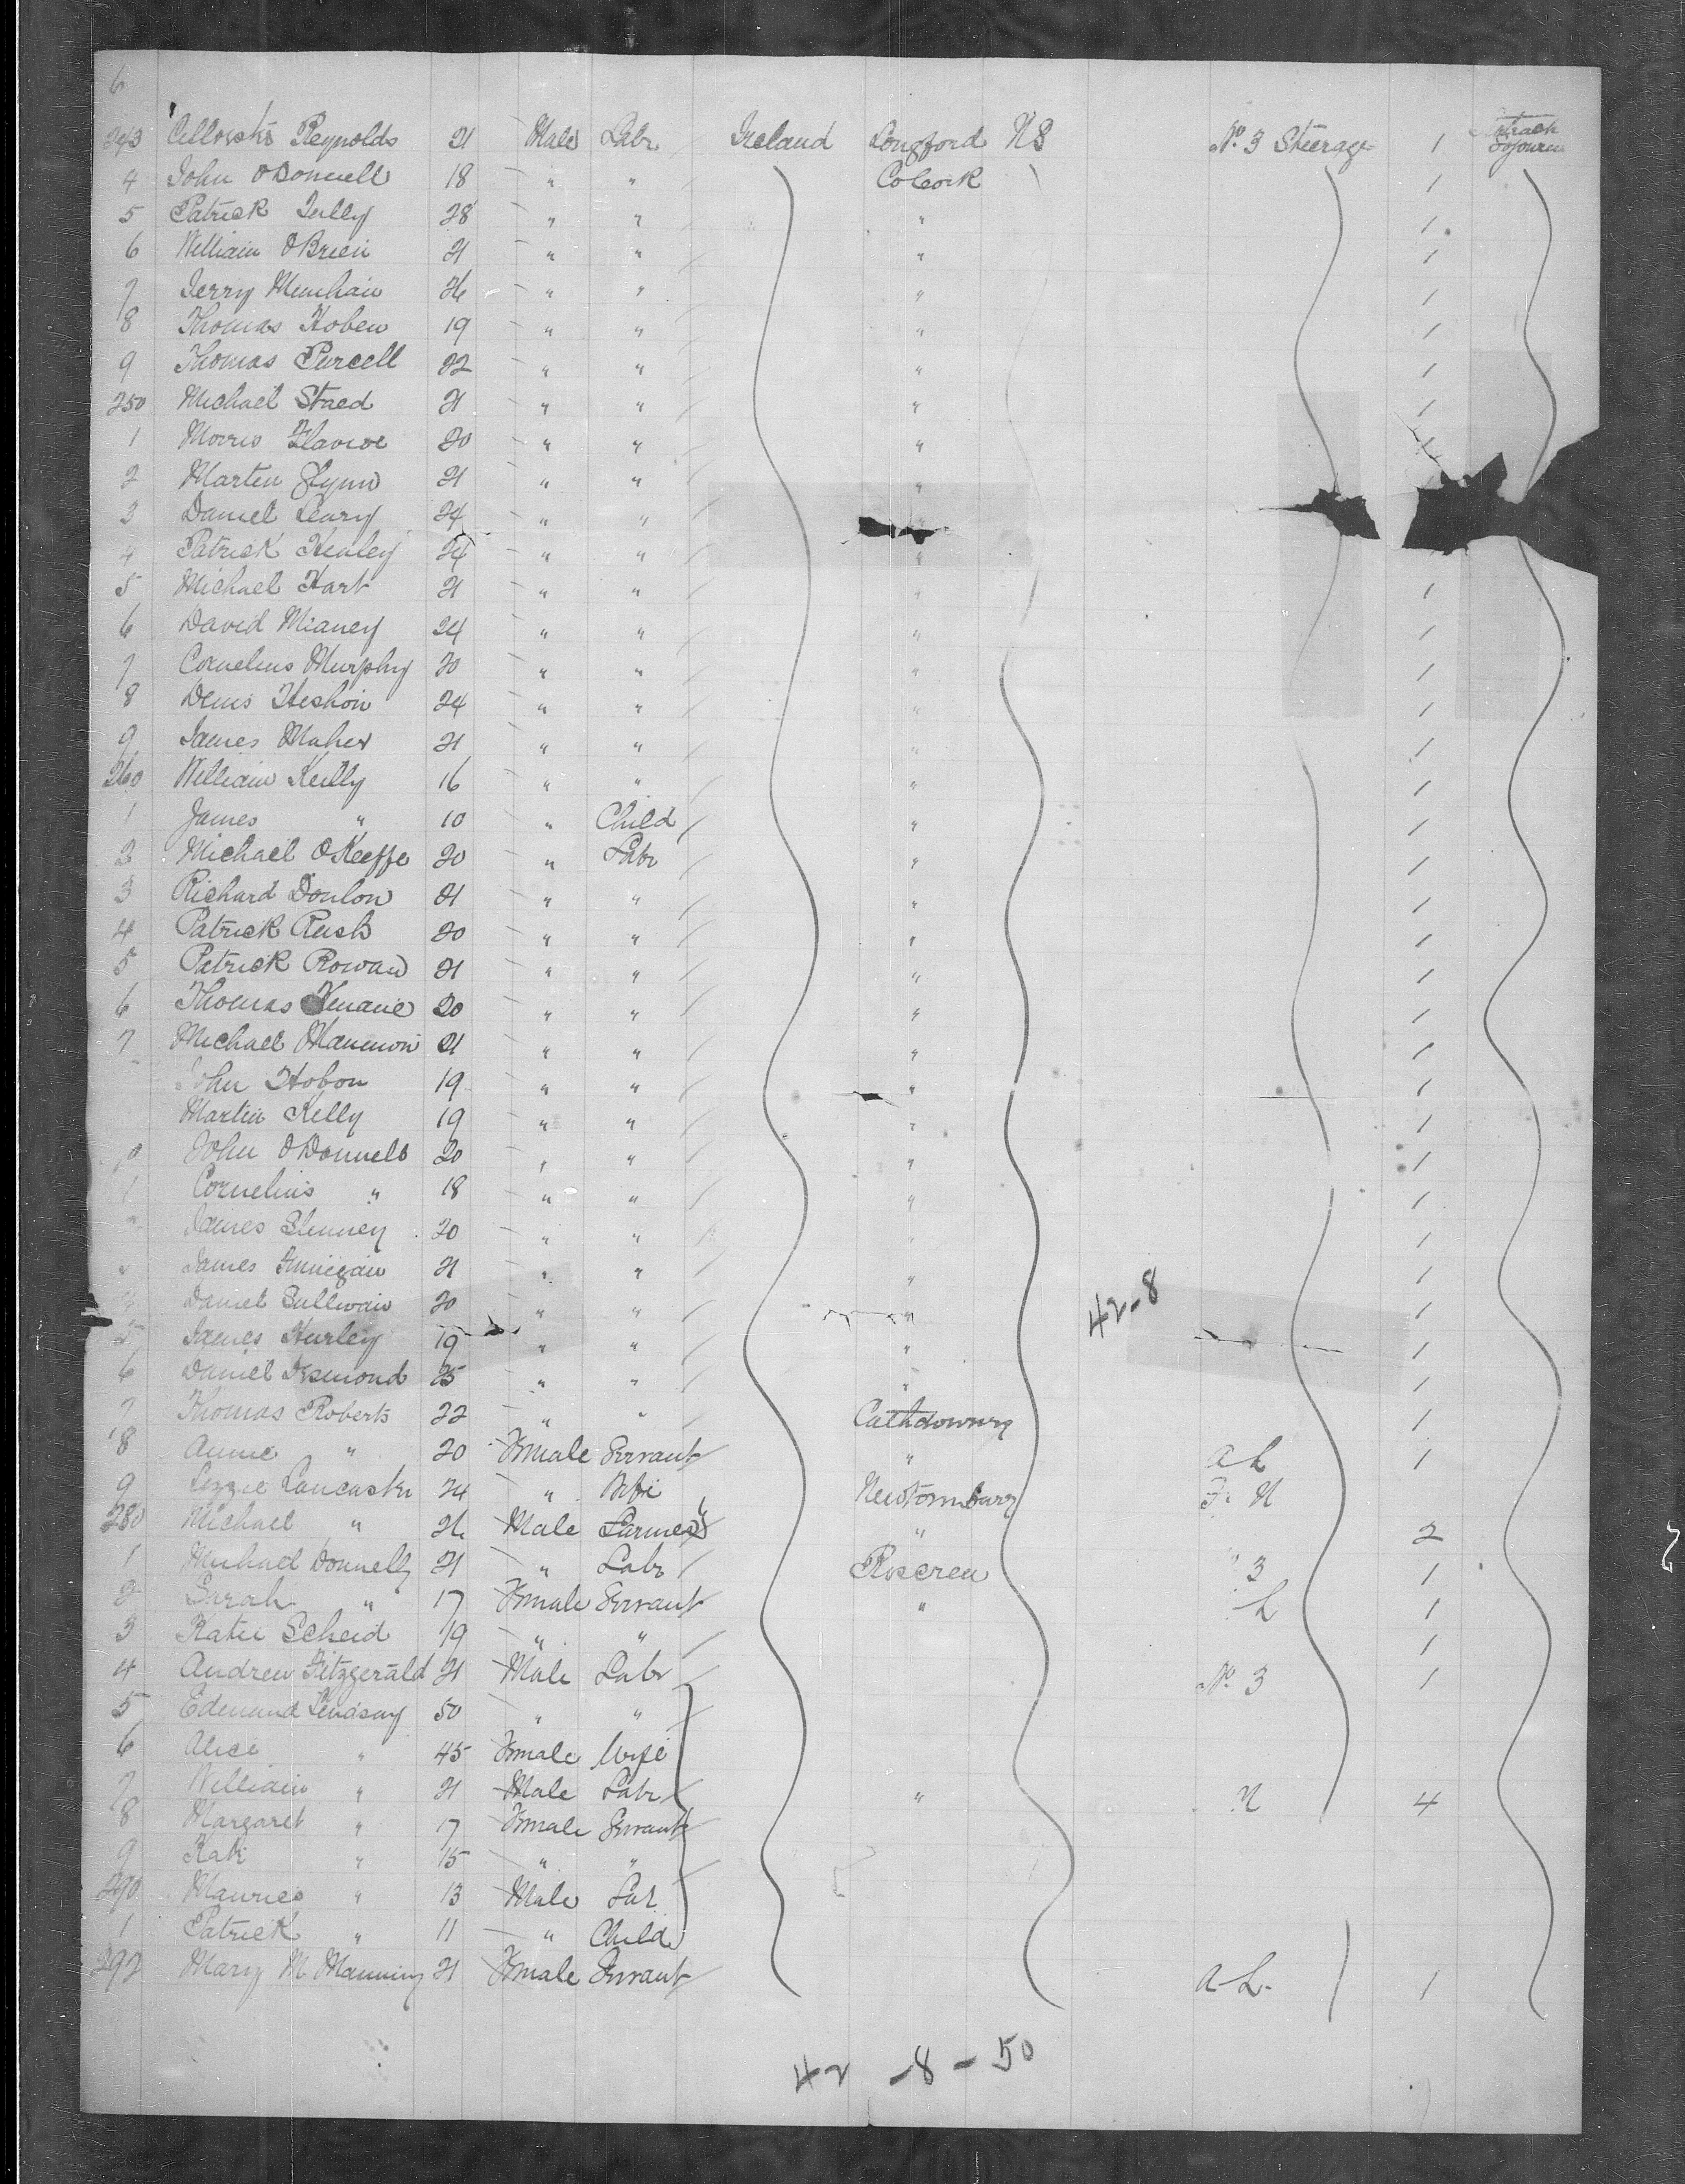 6
243 Reynolds 21 Male Labr Ireland Longford US No. 3 Steerage 1
4 John O'Donnell 18 " " Co Cork \ 1
5 Patrick 28 " " " 1
6 William O'Brien 21 " " " 1
7 Jerry 26 " " " 1
8 Thomas Hoben 19 " " " 1
9 Thomas Purcell 22 " " " 1
250 Michael Staed 21 " " " 1
1 Morris 20 " " " 1
2 Martin Flynn 21 " " "
3 Daniel Leary 24 " "
4 Patrick Healey 24 " " "
5 Michael Hart 21 " " " 1
6 David Meaney 24 " " " 1
7 Cornelius Murphy 20 " " " 1
8 Denis 24 " " " 1
9 James Maher 21 " " " 1
260 William Reilly 16 " " " 1
1 James " 10 " Child " 1
2 Michael O'Keeffe 20 " Labr " 1
3 Richard Donlon 21 " " " 1
4 Patrick Rush 20 " " " 1
5 Patrick Rowan 21 " " " 1
6 Thomas 20 " " " 1
7 Michael 21 " " " 1
John Hobon 19 " " " 1
Martin Kelly 19 " " " 1
John O'Donnell 20 " " " 1
1 Cornelius " 18 " " " 1
James 20 " " " 1
James Finnegan 21 " " " 1
4 Daniel Sullivan 20 " " " 42-8 1
5 James Hurley 19 " " " 1
6 Daniel Desmond 25 " " " 1
7 Thomas Roberts 22 " " 1
8 Annie " 20 Female Servant " A L 1
9 Lizzie Lancaster 24 " Wife
280 Michael " 26 Male Farmer " 2
1 Michael Donnelly 21 " Labr Roscrea " 3 1
2 Sarah " 17 Female Servant " L 1
3 Katie Scheid 19 " " 1
4 Andrew Fitzgerald 21 Male Labr No. 3 1
5 Edmund Lindsay 50 " "
6 Alice " 45 Female Wife
7 William " 21 Male Labr " 4
8 Margaret " 17 Female Servant
9 Kate " 15 " "
290 Maurice " 13 Male
1 Patrick " 11 " Child
292 Mary M Manning 21 Female Servant A-L- 1
42 -8-50